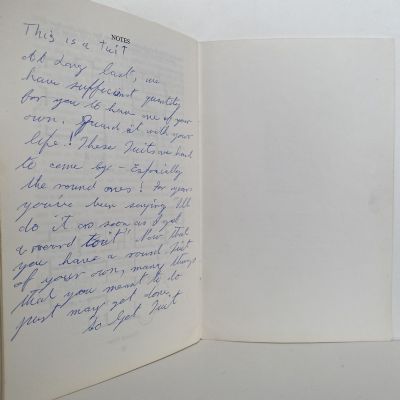 NOTES
This is a tuit
At Long last, we
have sufficient quantity
for you to have one of your
own. Guard it with your
life! These Tuits are hard
to come by - Especially
the round ones! For years
you've been saying "I'll
do it as soon as I get
a round tuit" Now that
you have a round Tuit
of your own, many things
that you meant to do
just may get done.
So Get Tuit